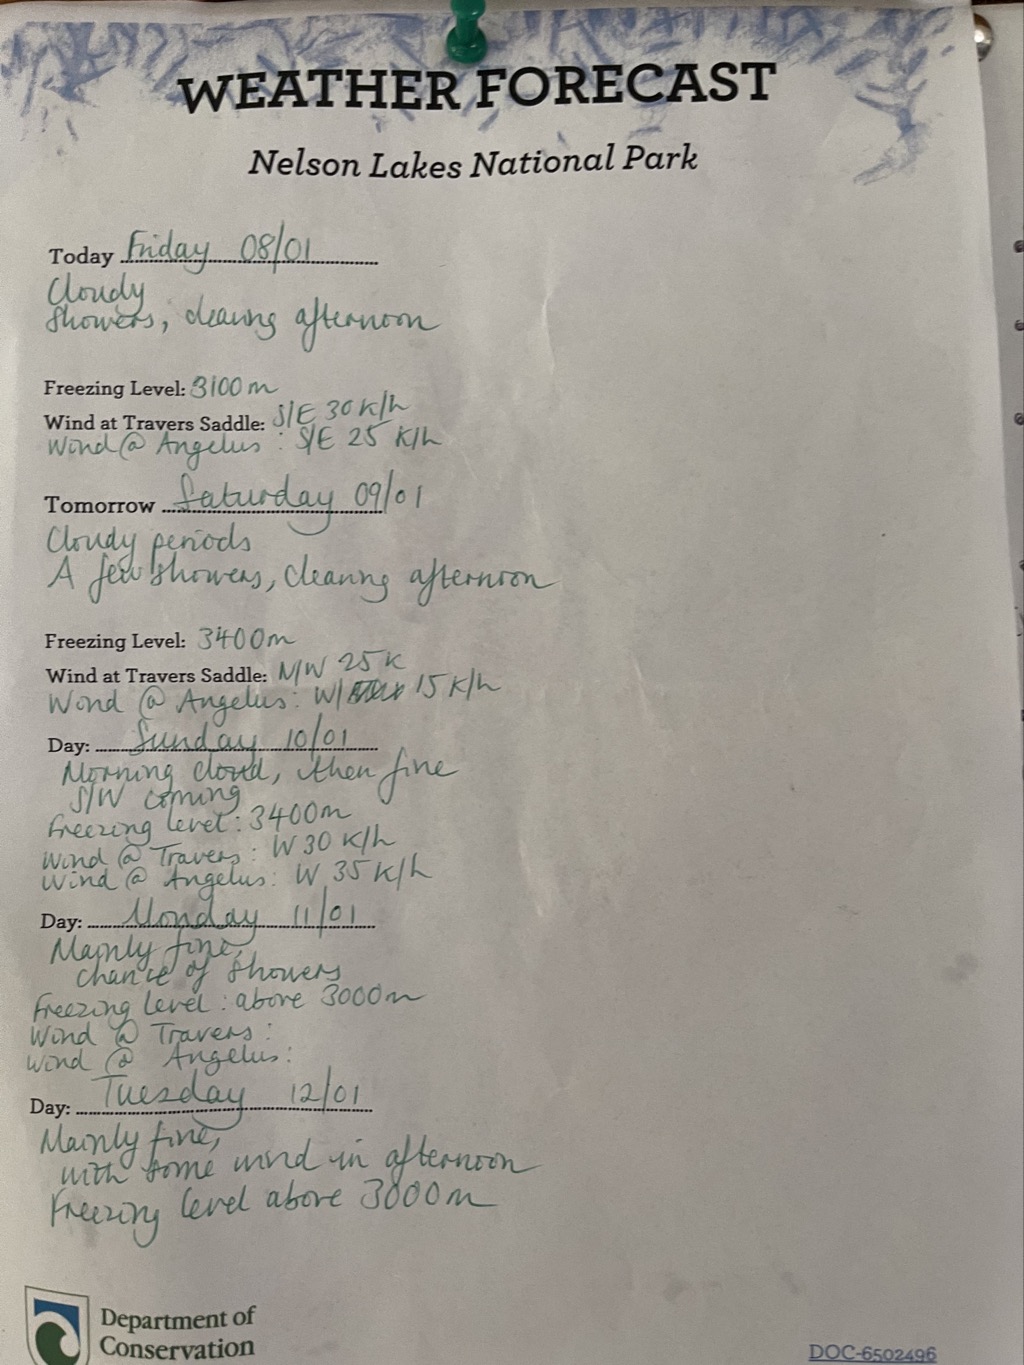 WEATHER FORECAST
Nelson Lakes National Park
Today Friday 08/01
Cloudy
Showers, clearing afternoon
Freezing Level: 3100m
Wind at Travers Saddle: S/E 30 K/h
Wind @ Angelus : S/E 25 K/h
Tomorrow Saturday 09/01
Cloudy periods
A few showers, clearing afternoon
Freezing Level: 3400m
Wind at Travers Saddle: N/W 25 K
Wind @ Angelus: W/ 15 K/h
Day: Sunday 10/01
Morning cloud, then fine
S/W coming
Freezing level: 3400m
Wind @ Travers: W 30 K/h
Wind @ Angelus: W 35 K/h
Day: Monday 11/01
Mainly fine,
chance of showers
Freezing level: above 3000m
Wind @ Travers:
Wind @ Angelus:
Day: Tuesday 12/01
Mainly fine,
with some wind in afternoon
Freezing level above 3000m
Department of
Conservation
DOC-6502496